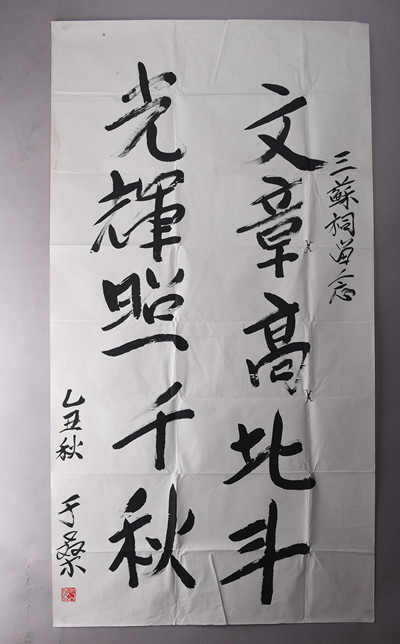 三蘇祠留念
文章高北斗
光輝照千秋
乙丑秋 于桑